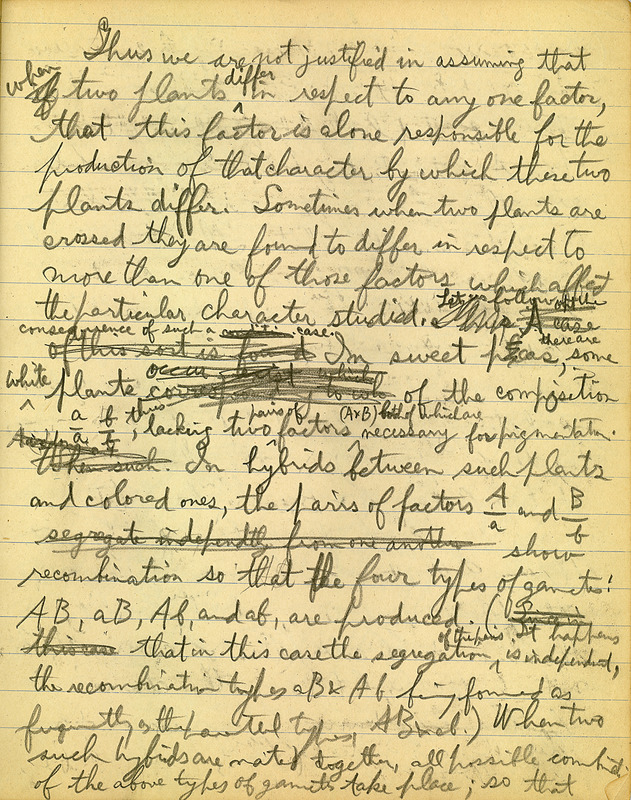 Thus we are not justified in assuming that
when two plants differ in respect to any one factor,
that this factor is alone responsible for the
production of that character by which these two
plants differ. Sometimes when two plants are
crossed they are found to differ in respect to
more than one of those factors which affect
the particular character studied. Let us follow out the
consequence of such a case.
of this sort is found In sweet peas, there are some
white plants of the composition
a/a b/b, thus lacking two pairs of factors (A&B) both of which are necessary for pigmentation.
When such. In hybrids between such plants
and colored ones, the pairs of factors A/a and B/b
segregate independently from one another show
recombination so that the four types of gametes:
AB, aB, Ab, and ab, are produced. (
this case that in this case the segregation of the pairs It happens is independent,
the recombination types aB & Ab being formed as
frequently as the parental types, AB and ab.) When two
such hybrids are mated together, all possible combin.
of the above types of gametes take place; so that